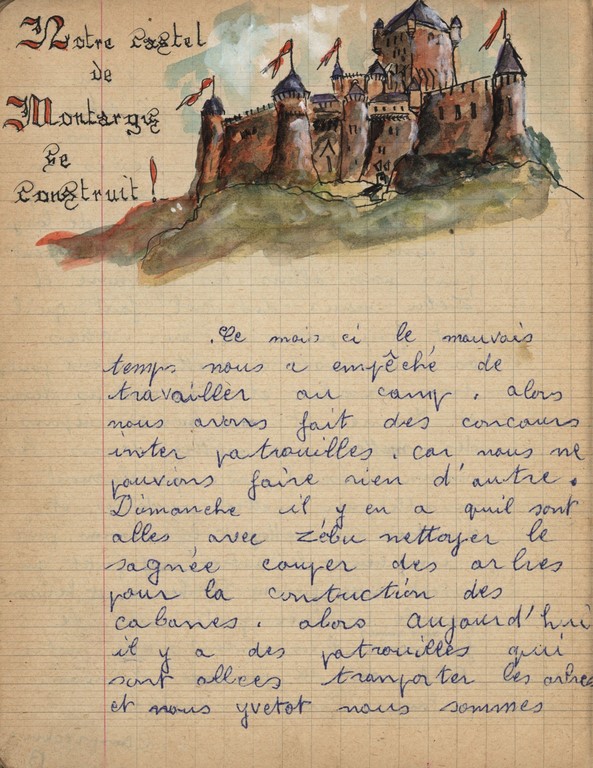 Notre castel
de
Montargis
se
construit !
Ce mois ci le mauvais
temps nous a empêché de
travailler au camp. alors
nous avons fait des concours
inter patrouilles. car nous ne
pouvions faire rien d'autre.
Dimanche il y en a quil sont
alles avec Zébu nettoyer le
sagnée couper des arbres
pour la contuction des
cabanes. alors aujourd'hui
il y a des patrouilles qui
sont allees tranporter les arbres
et nous yvetot nous sommes